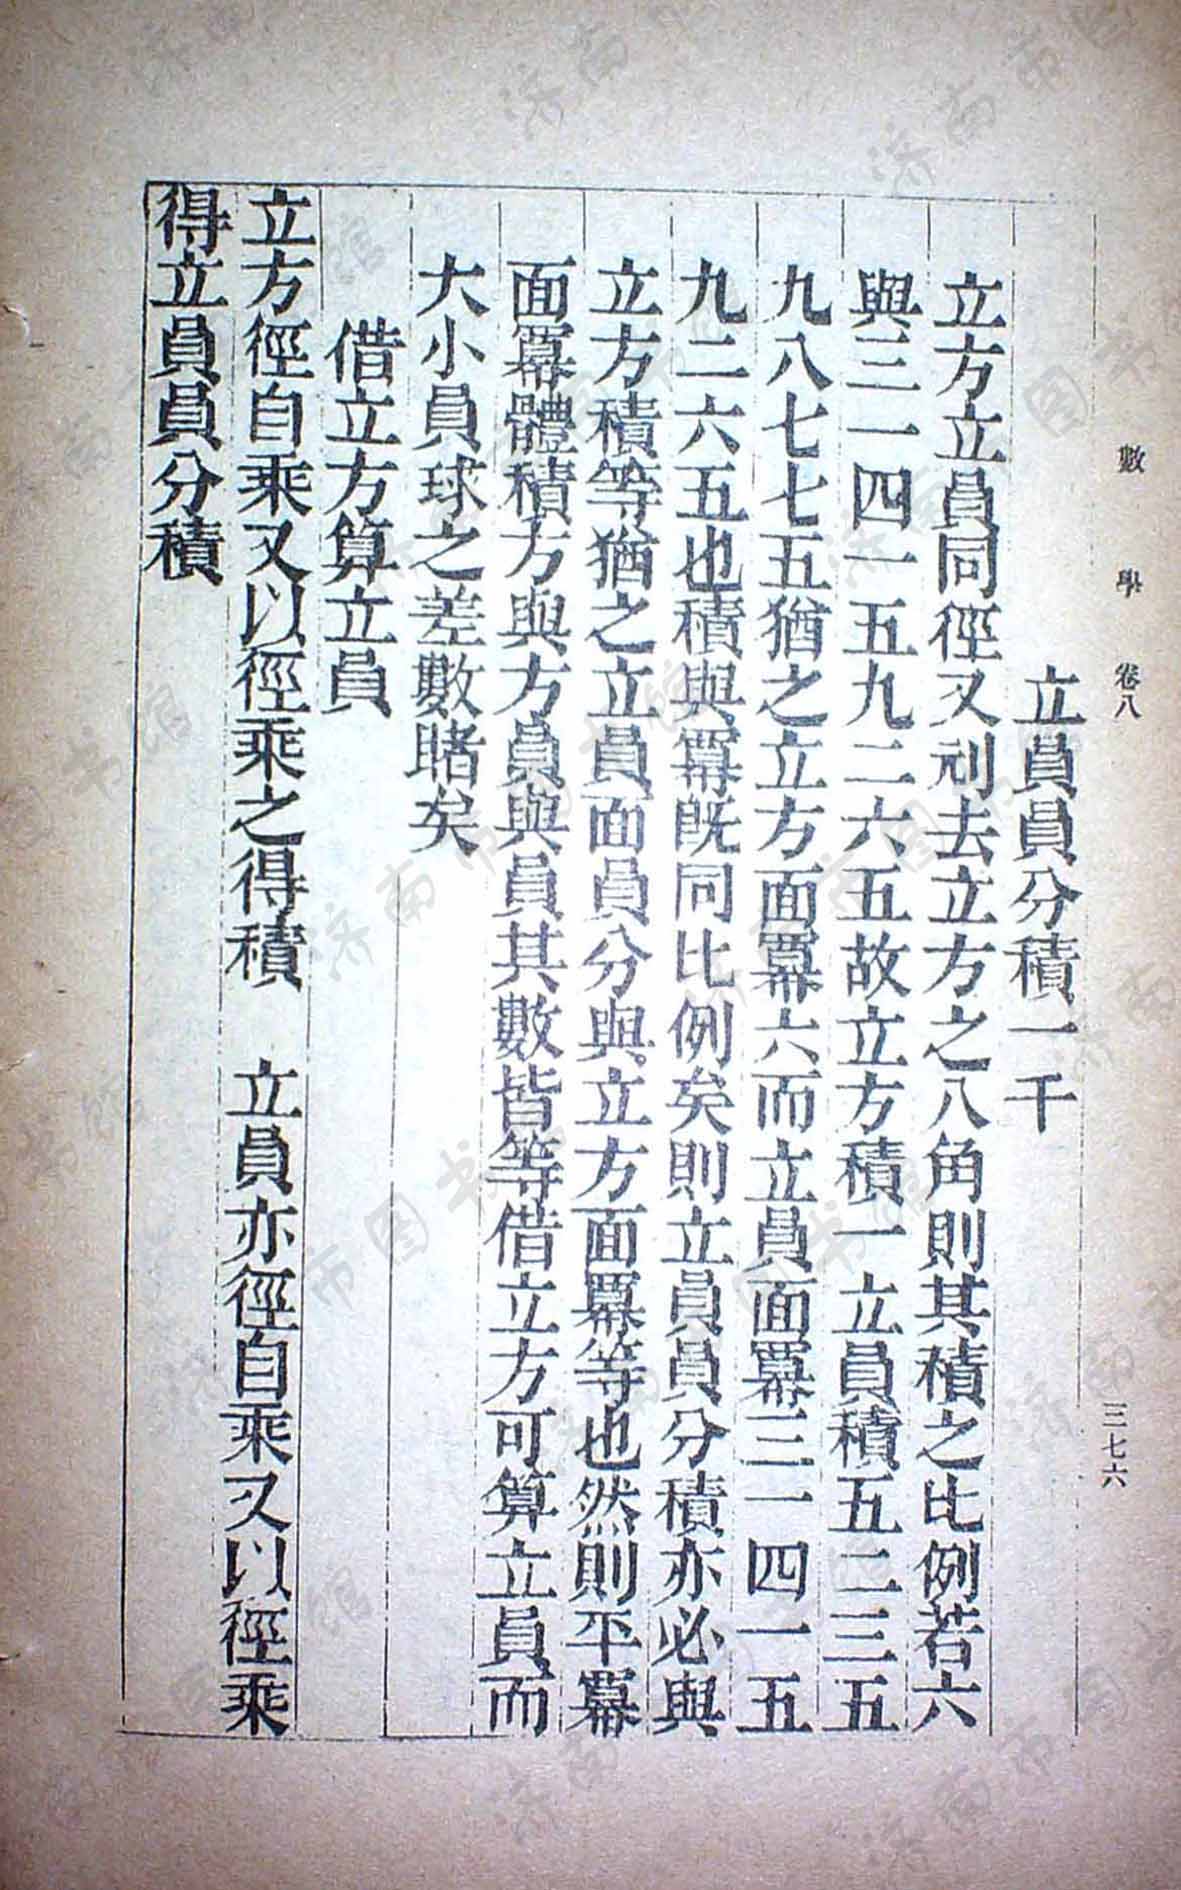 數學 卷八
三七六
立員員分積一千
立方立員同徑又刓去立方之八角則其積之比例若六
與三一四一五九二六五故立方積一立員積五二三五
九八七七五猶之立方面羃六而立員面羃三一四一五
九二六五也積與羃旣同比例矣則立員員分積亦必與
立方積等猶之立員面員分與立方面羃等也然則平羃
面羃體積方與方員與員其數皆等借立方可算立員而
大小員球之差數睹矣
借立方算立員
立方徑自乘又以徑乘之得積 立員亦徑自乘又以徑乘
得立員員分積